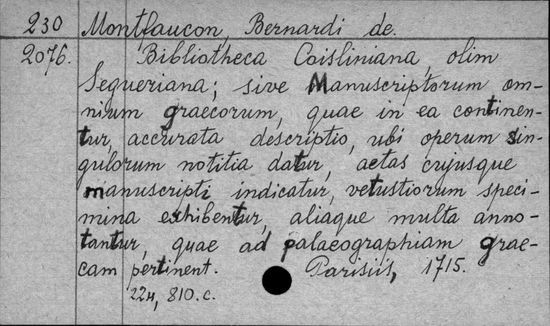 230 Montfaucon, Bernardi de.
2076. Bibliotheca Coisliniana, olim
Segueriana; sive Manuscriptorum om-
nium graecorum, quae in ea continen-
tur, accurata descriptio, ubi operum sin-
gulorum notitia datur, aetas cujusque
manuscripti indicatur, vetustiorum speci-
mina exhibentur, aliaque multa anno-
tantur, quae ad palaeographiam grae-
cam pertinent. Parisiis, 1715.
224, 810.c.